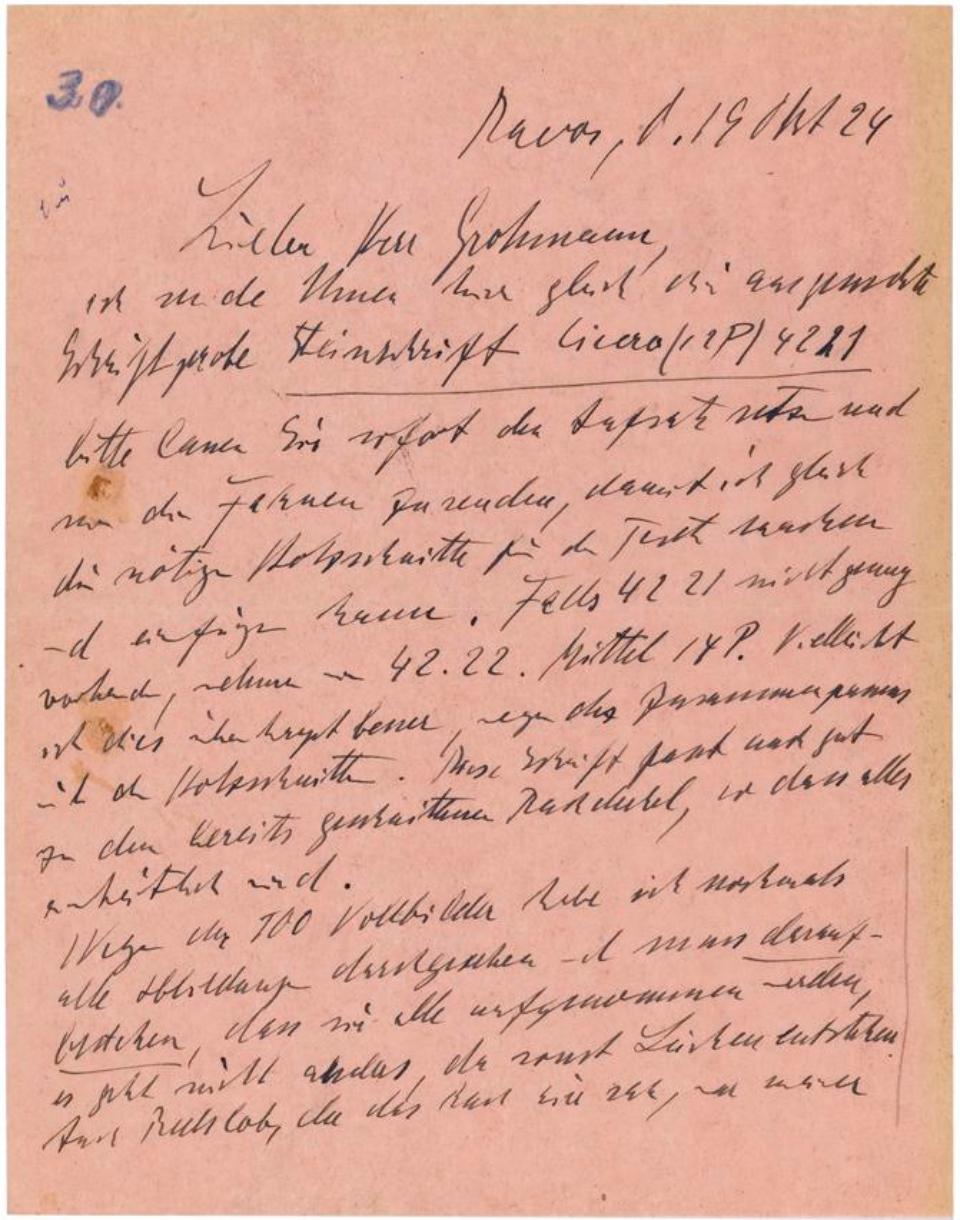 30.
Davos, d. 19 Okt 24
Lieber Herr Grohmann,
ich sende Ihnen hier gleich die ausgesuchte
Schriftprobe Steinschrift Cicero (12P) 4221
bitte lassen Sie sofort den Aufsatz setzen und
mir die Fahnen zusenden, damit ich gleich
die nötigen Holzschnitte für den Text machen
und einfügen kann. Falls 4221 nicht genug
vorhanden, nehmen wir 42.22. Mittel 14P. Vielleicht
ist dies überhaupt besser, wegen des Zusammengehens
mit den Holzschnitten. Diese Schrift passt auch gut
zu dem bereits geschnittenen Deckel, so dass alles
einheitlich wird.
Wegen der 100 Vollbilder habe ich nochmals
alle Abbildungen durchgesehen und muss darauf-
bestehen, dass sie alle aufgenommen werden,
es geht nicht anders, da sonst Lücken entstehen.
Auch Redslob, der das hier sah, war meiner